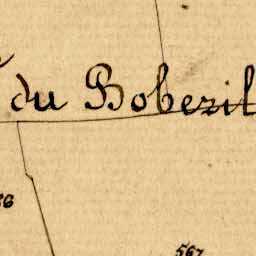 du Boberil
567